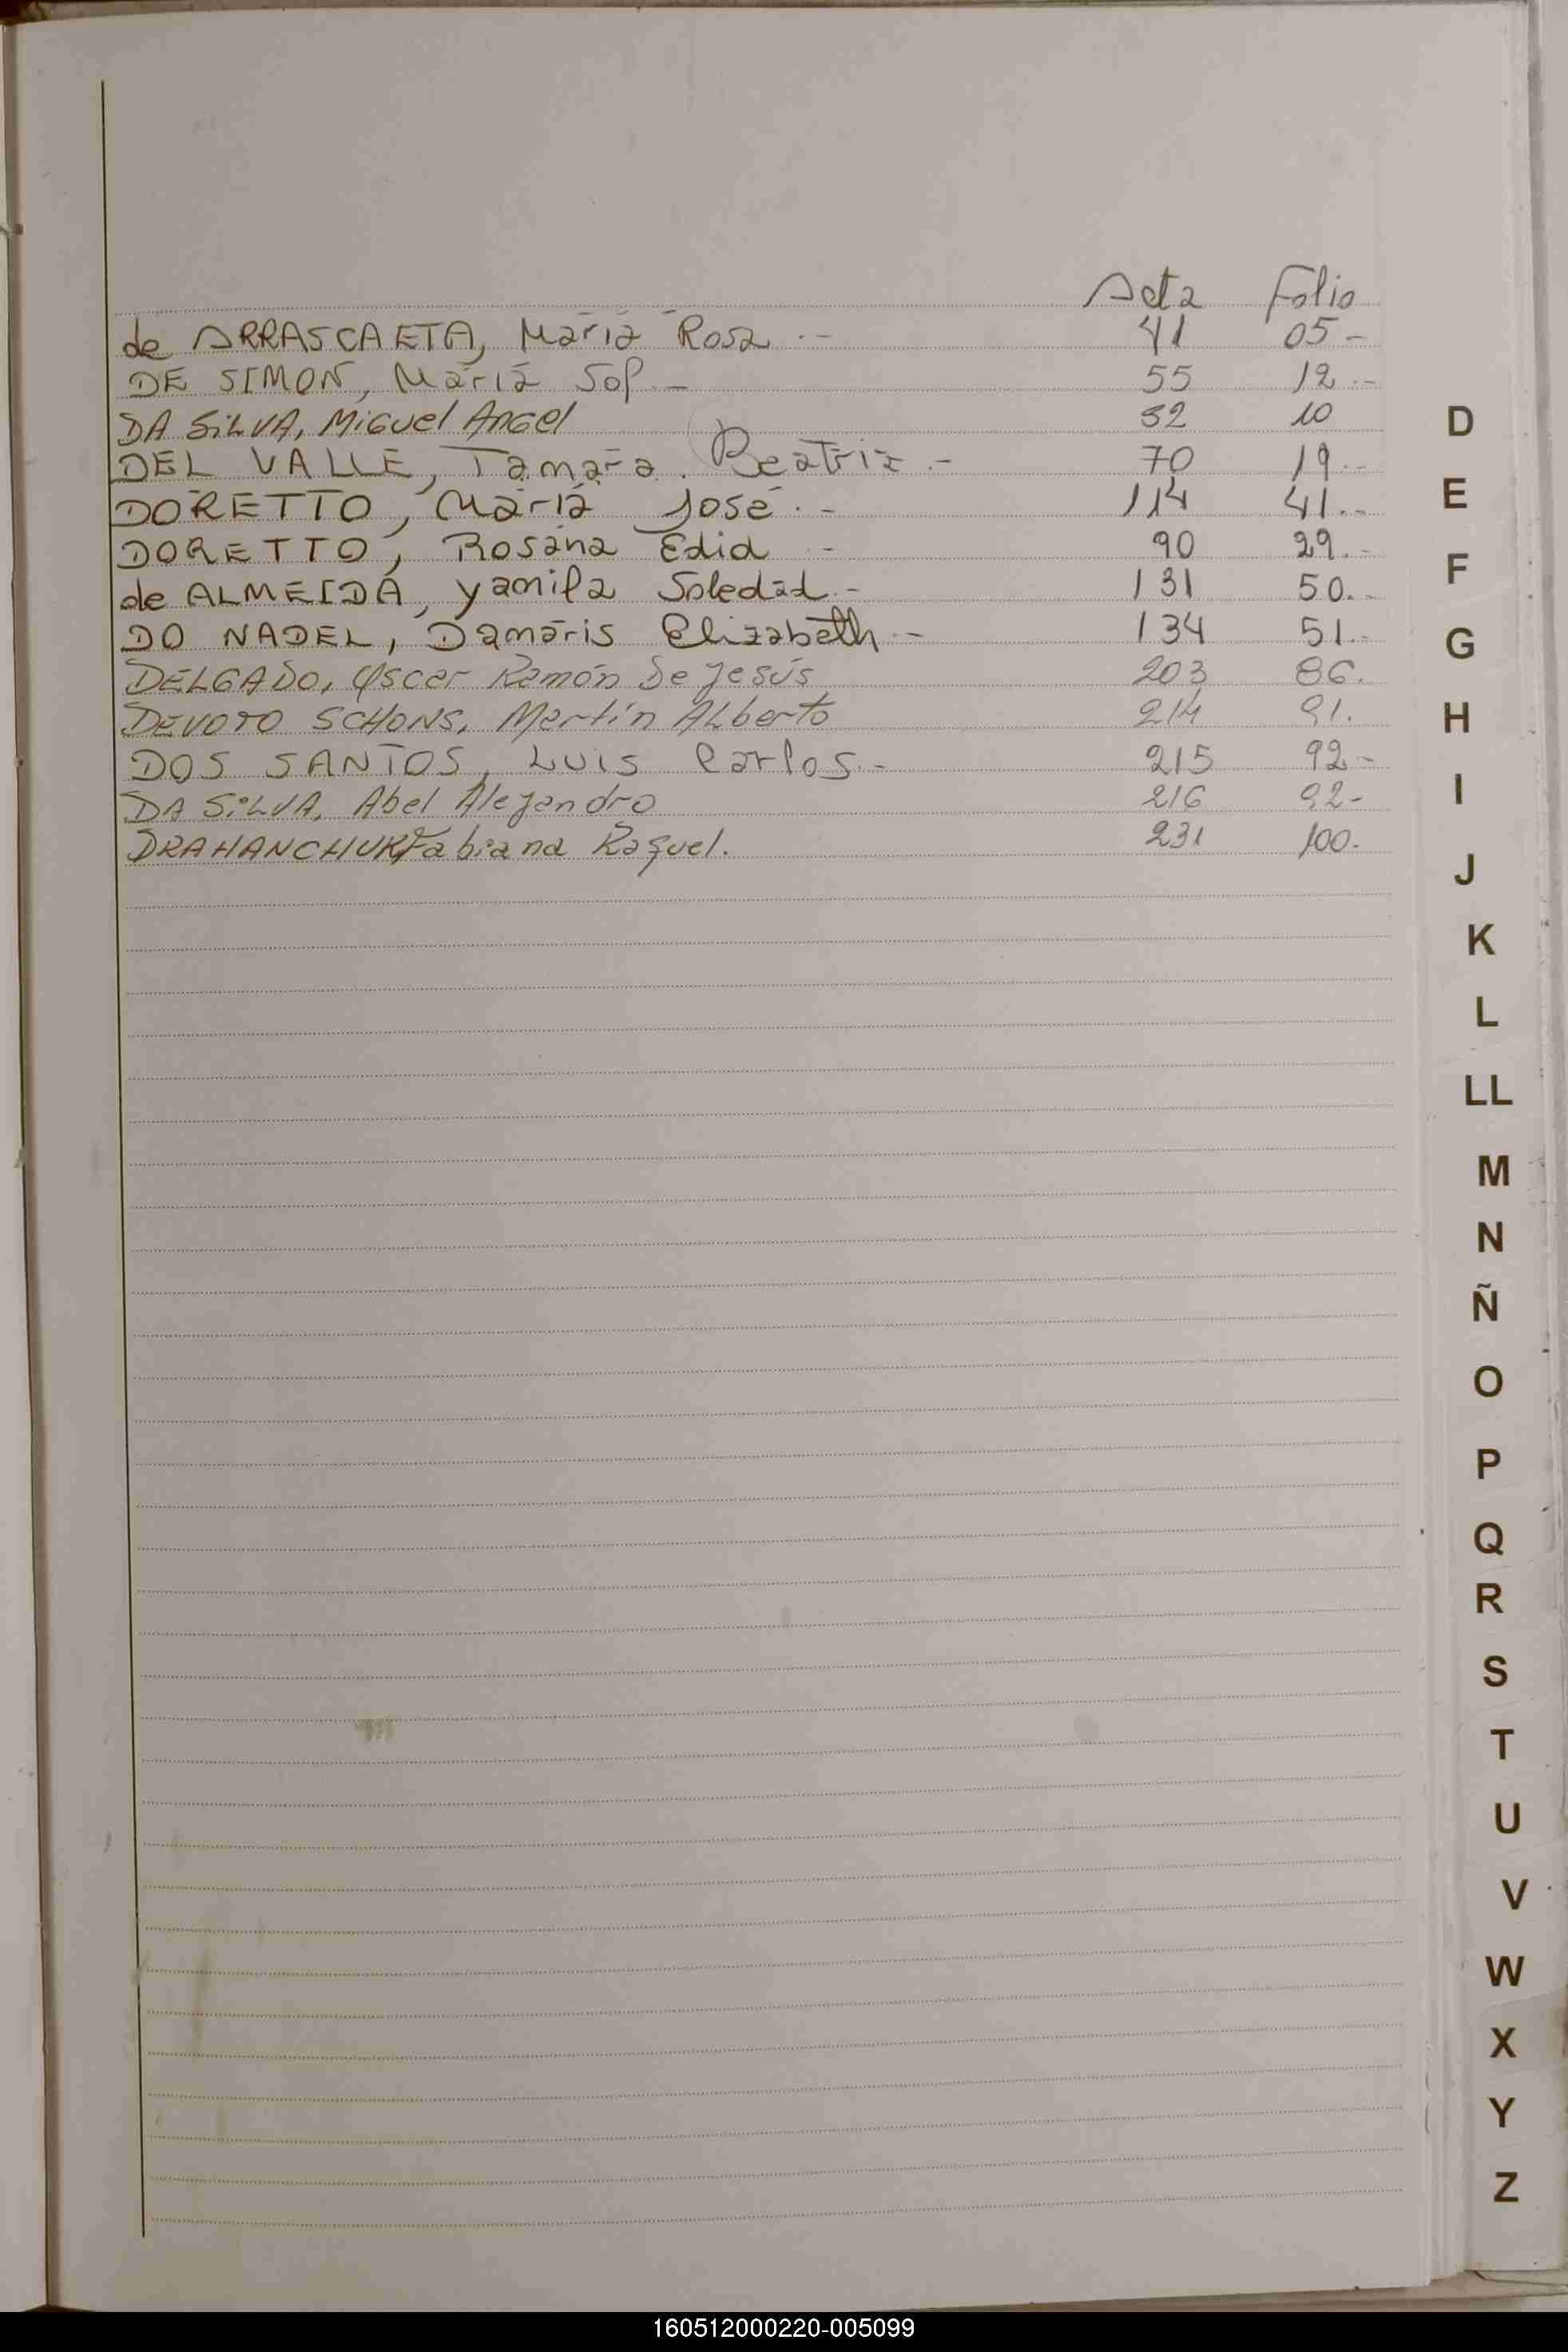 Acta Folio
de ARRASCAETA, María Rosa.- 41 05-
DE SIMON, María Sol.- 55 12.-
DA SiLVA, MiGuel AnGel 52 10
DEL VALLE, Tamara. Beatriz.- 70 19.-
DORETTO, María José.- 114 41.-
DORETTO, Rosana Edid.- 90 29.-
de ALMEIDA, Yamila Soledad.- 131 50.-
DO NADEL, Damaris Elizabeth.- 134 51.-
DELGADO, Oscar Ramón De Jesús 203 86.
DEVOTO SCHONS, Martín ALberto 214 91.
DOS SANTOS, Luis Carlos.- 215 92-
DA SiLVA, Abel Alejandro 216 92-
DRAHANCHUK, Fabiana Raquel. 231 100.
D
E
F
G
H
I
J
K
L
LL
M
N
Ñ
O
P
Q
R
S
T
U
V
W
X
Y
Z
160512000220-005099